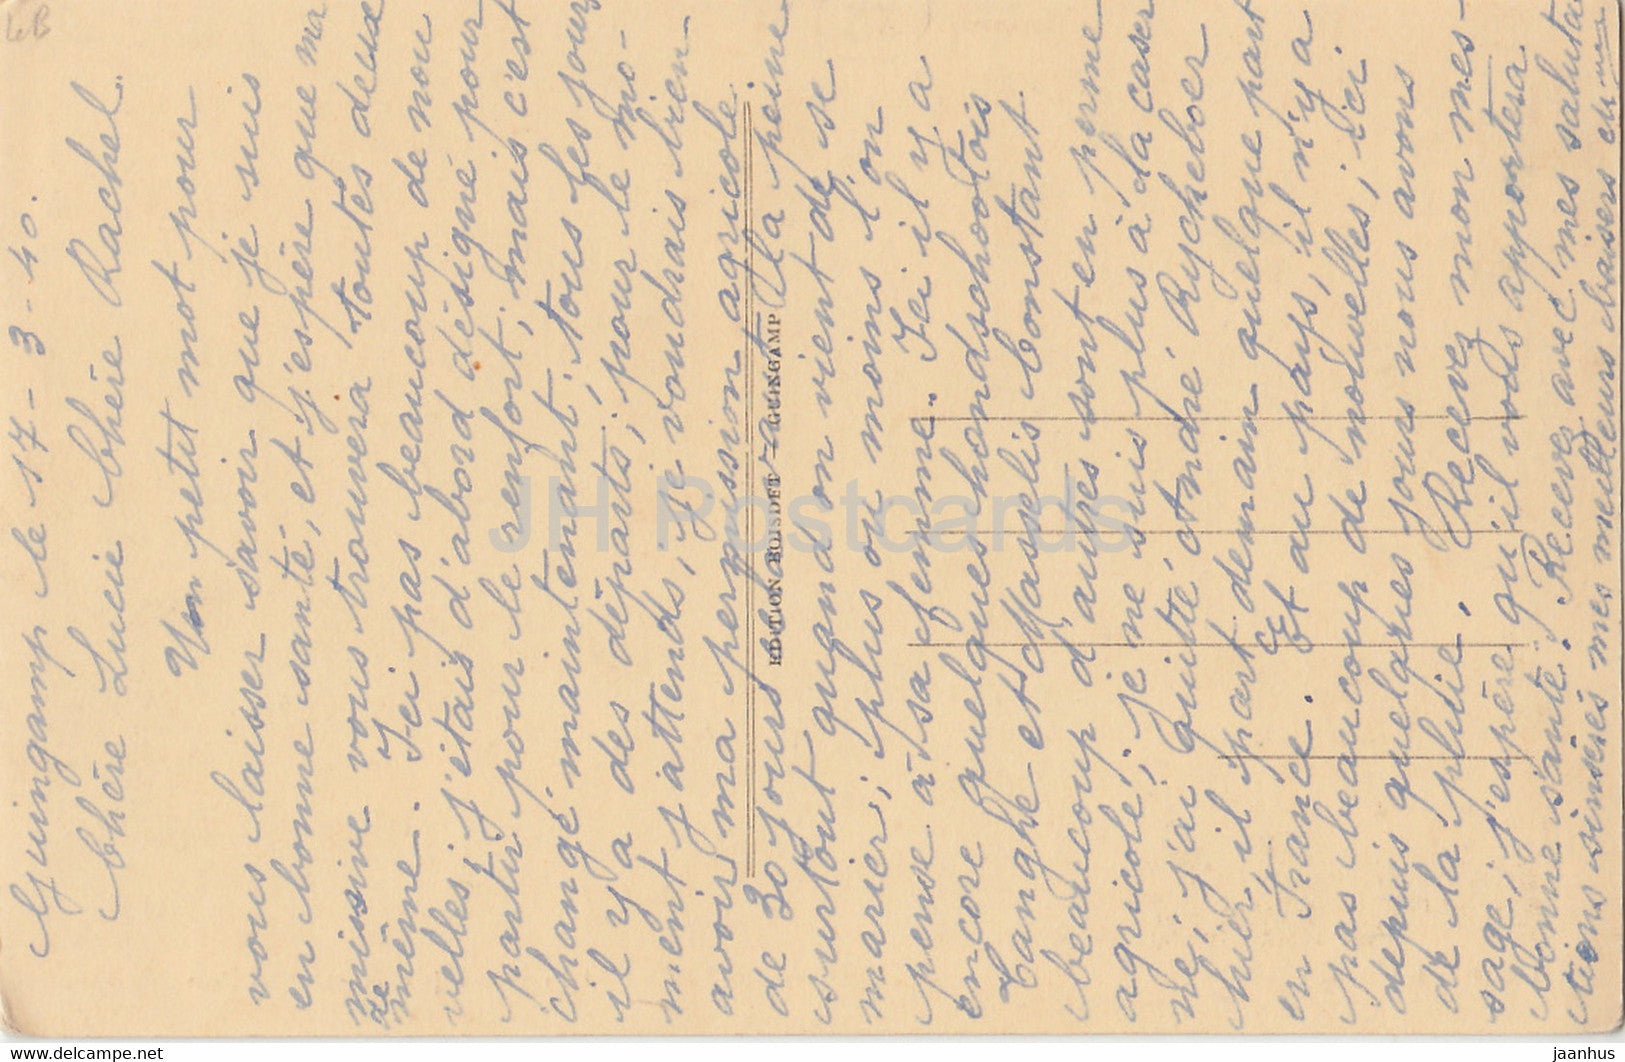 Guingamp le 17-3-40.
Chère Lucie Chère Rachel
Un petit mot pour
vous laisser savoir que je suis
en bonne santé, et j'espère que ma
missive vous trouvera toutes deux
de même. Ici pas beaucoup de nou
velles, j'étais d'abord désigné pour
partir pour le renfort, mais c'est
changé maintenant, tous les jours
il y a des départs, pour le mo-
ment j'attends, je voudrais bien
avoir ma permission agricole
de 30 jours La peine
surtout quand on vient de se
marier, plus ou moins l'on
pense à sa femme. Ici il y a
encore quelques hondschootois
Langhe et Masselis Constant
beaucoup d'autres sont en perme
agricole, je ne suis plus à la caser
ne, j'ai quitté André Ryckeboer
hier, il part demain quelque part
en France. Et au pays, il n'y a
pas beaucoup de nouvelles, ici
depuis quelques jours nous avons
de la pluie. Recevez mon mes-
sage, j'espère qu'il vous apportera
bonne santé. Recevez avec mes saluta
tions sincères mes meilleurs baisers
EDITION BOISDET - GUINGAMP
JH Postcards
www.delcampe.net
jaanhus